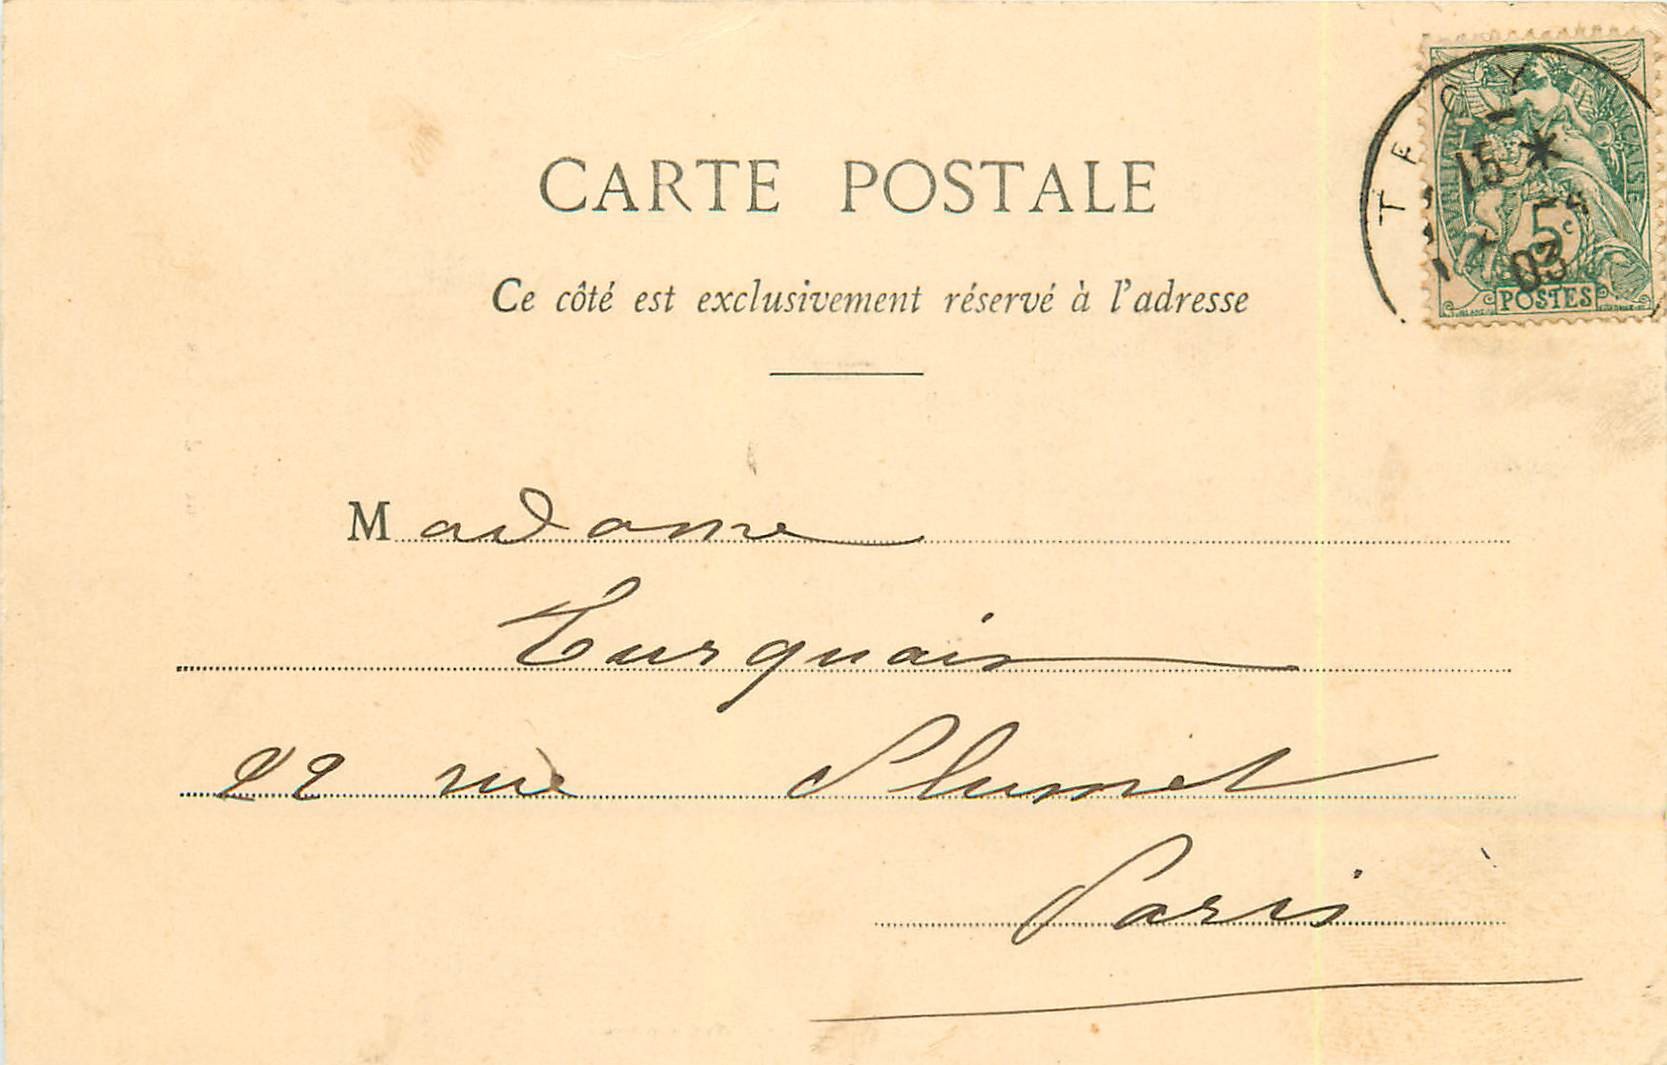 CARTE POSTALE
Ce côté est exclusivement réservé à l'adresse
Madame
Turquais
22 rue Plumet
Paris
15 *
5c
03
POSTES